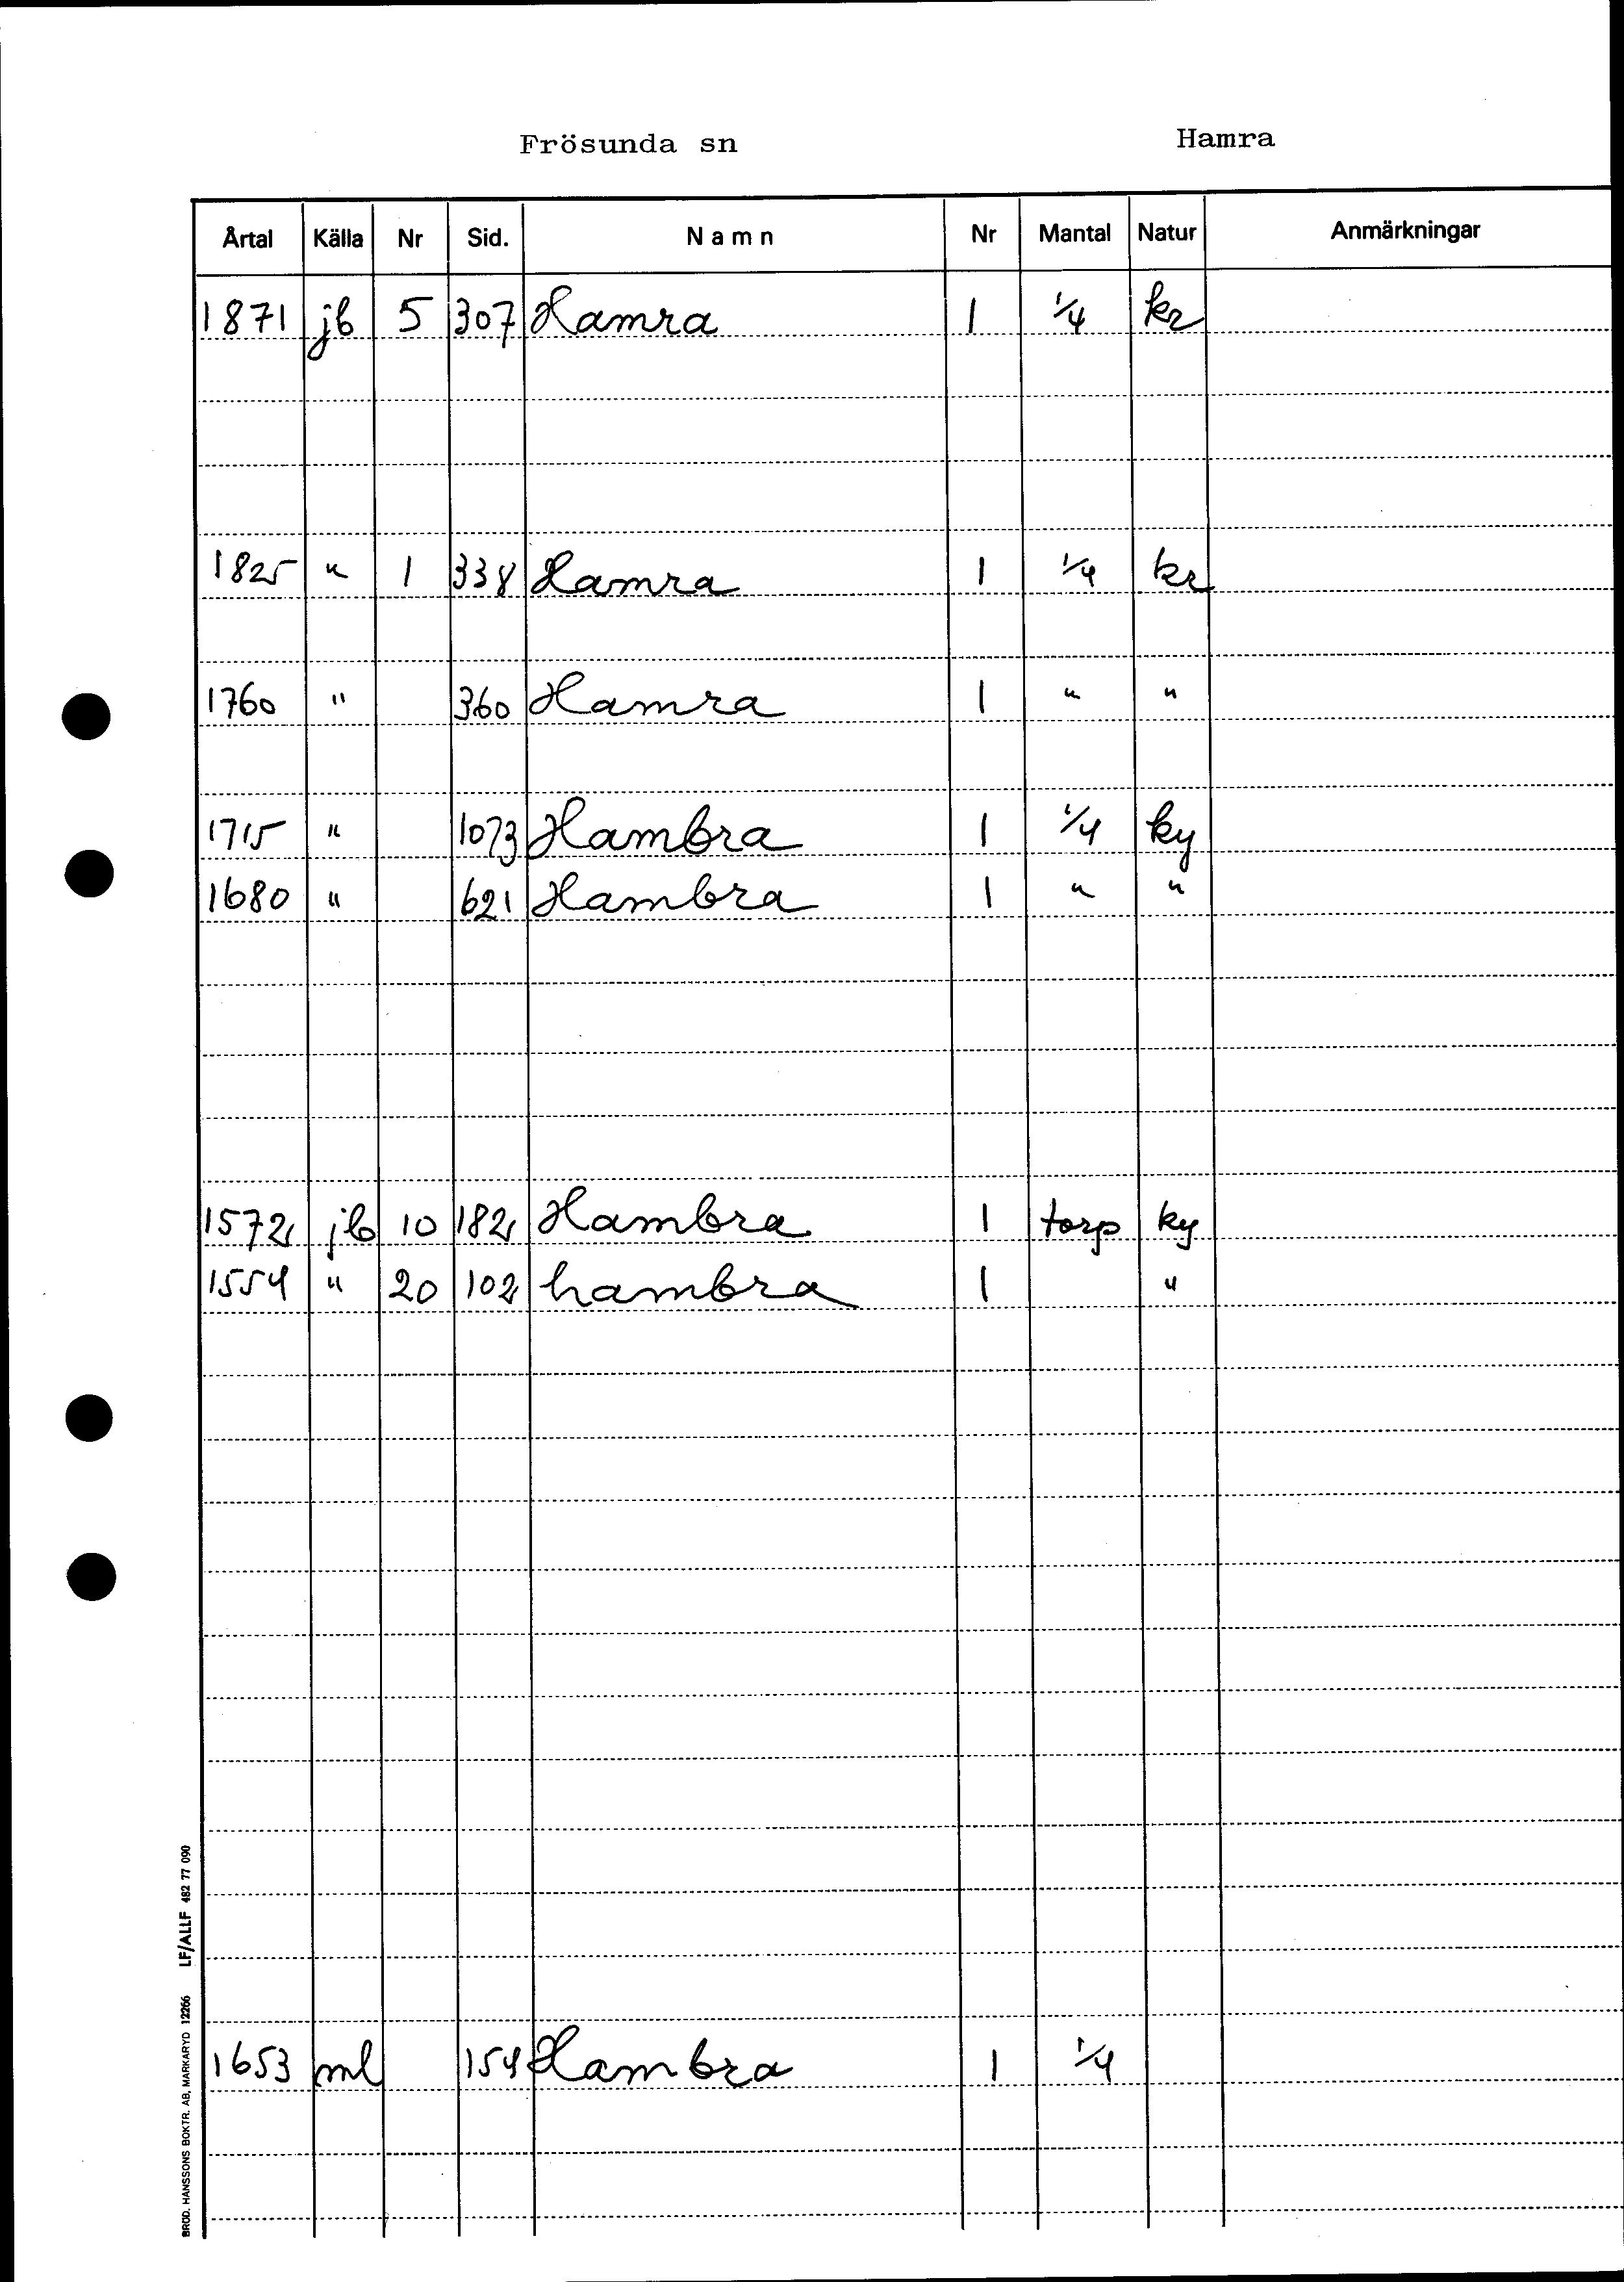 Frösunda sn Hamra
Årtal Källa Nr Sid. Namn Nr Mantal Natur Anmärkningar
1871 jb 5 307 Hamra 1 1/4 kr
1825 " 1 338 Hamra 1 1/4 kr
1760 " 360 Hamra 1 " "
1715 " 1073 Hambra 1 1/4 ky
1680 " 621 Hambra 1 " "
1572 jb 10 182 Hambra 1 torp ky
1554 " 20 102 hambra 1 "
1653 ml 154 Hambra 1 1/4
BRÖD. HANSSONS BOKTR. AB, MARKARYD 12266 LF/ALLF 482 77 090